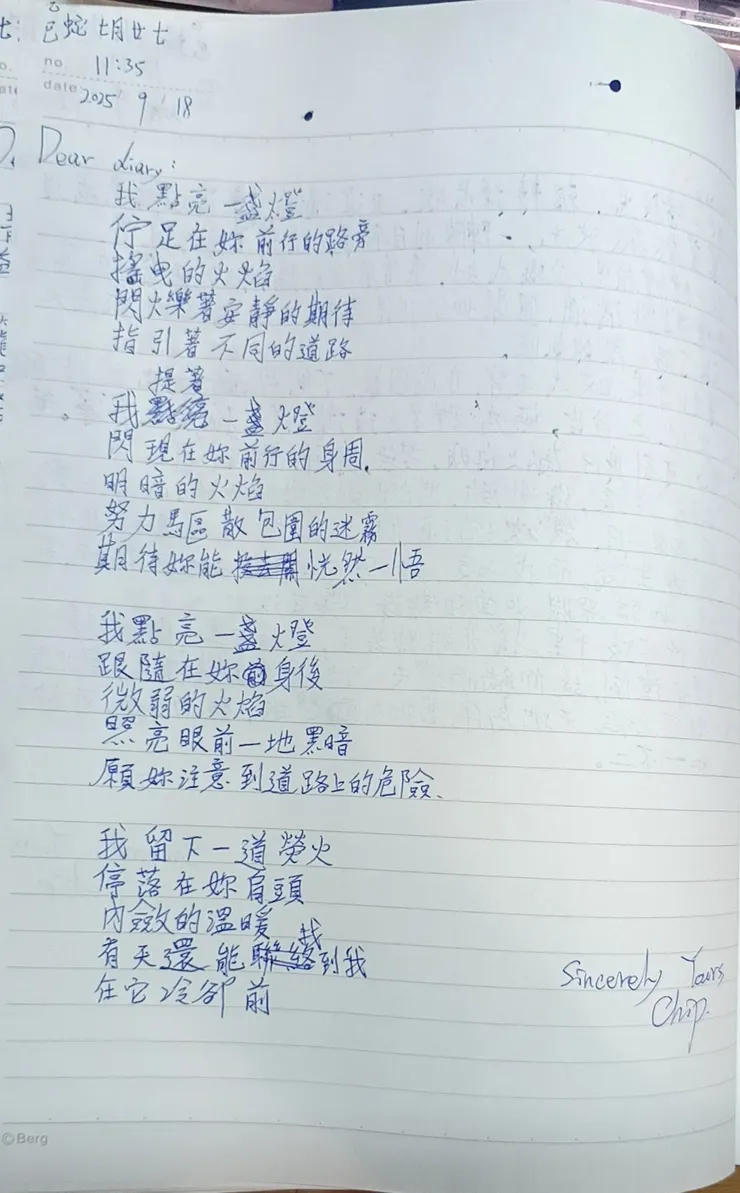 乙巳蛇七月廿七
no. 11:35
date 2025 9 18
Dear diary:
我點亮一盞燈
佇足在妳前行的路旁
搖曳的火焰
閃爍著安靜的期待
指引著不同的道路
提著
我點亮一盞燈
閃現在妳前行的身周.
明暗的火焰
努力驅散包圍的迷霧
期待妳能恍然一悟
我點亮一盞燈
跟隨在妳身後
微弱的火焰
照亮眼前一地黑暗
願妳注意到道路上的危險、
我留下一道熒火
停落在妳肩頭
內斂的溫暖
找
有天還能聯絡到我
在它冷卻前
Sincerely Yours
Chip.
©Berg